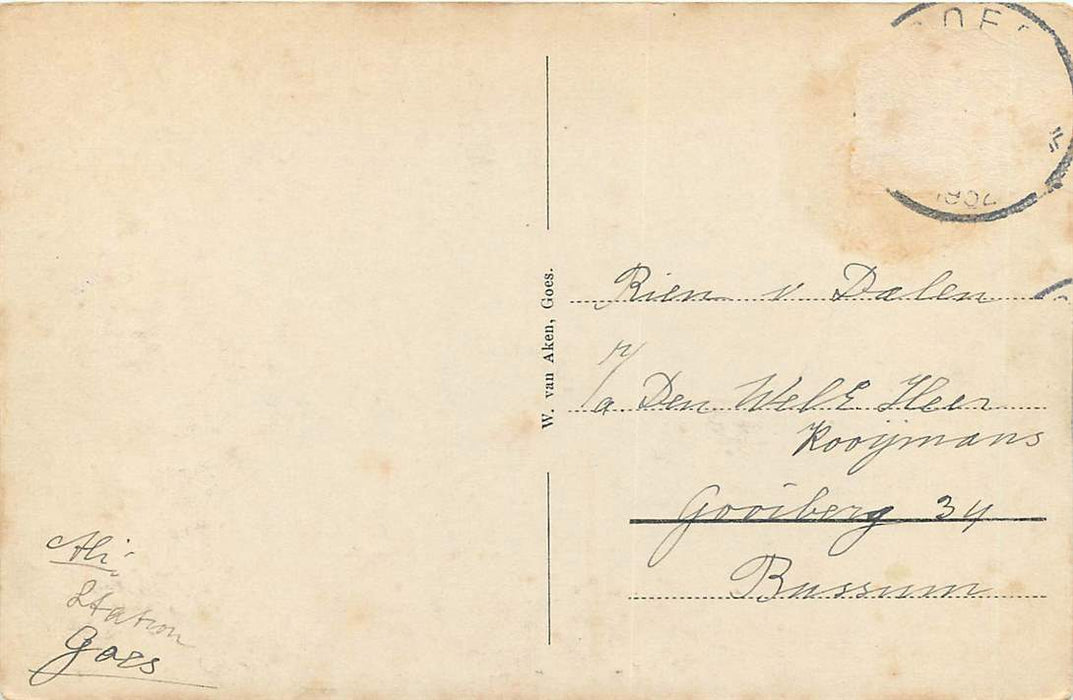 GOES
1932
W. van Aken, Goes.
Rien v Dalen
p/a Den Wel E Heer
Kooijmans
Gooiberg 34
Bussum
Ali,
Station
Goes